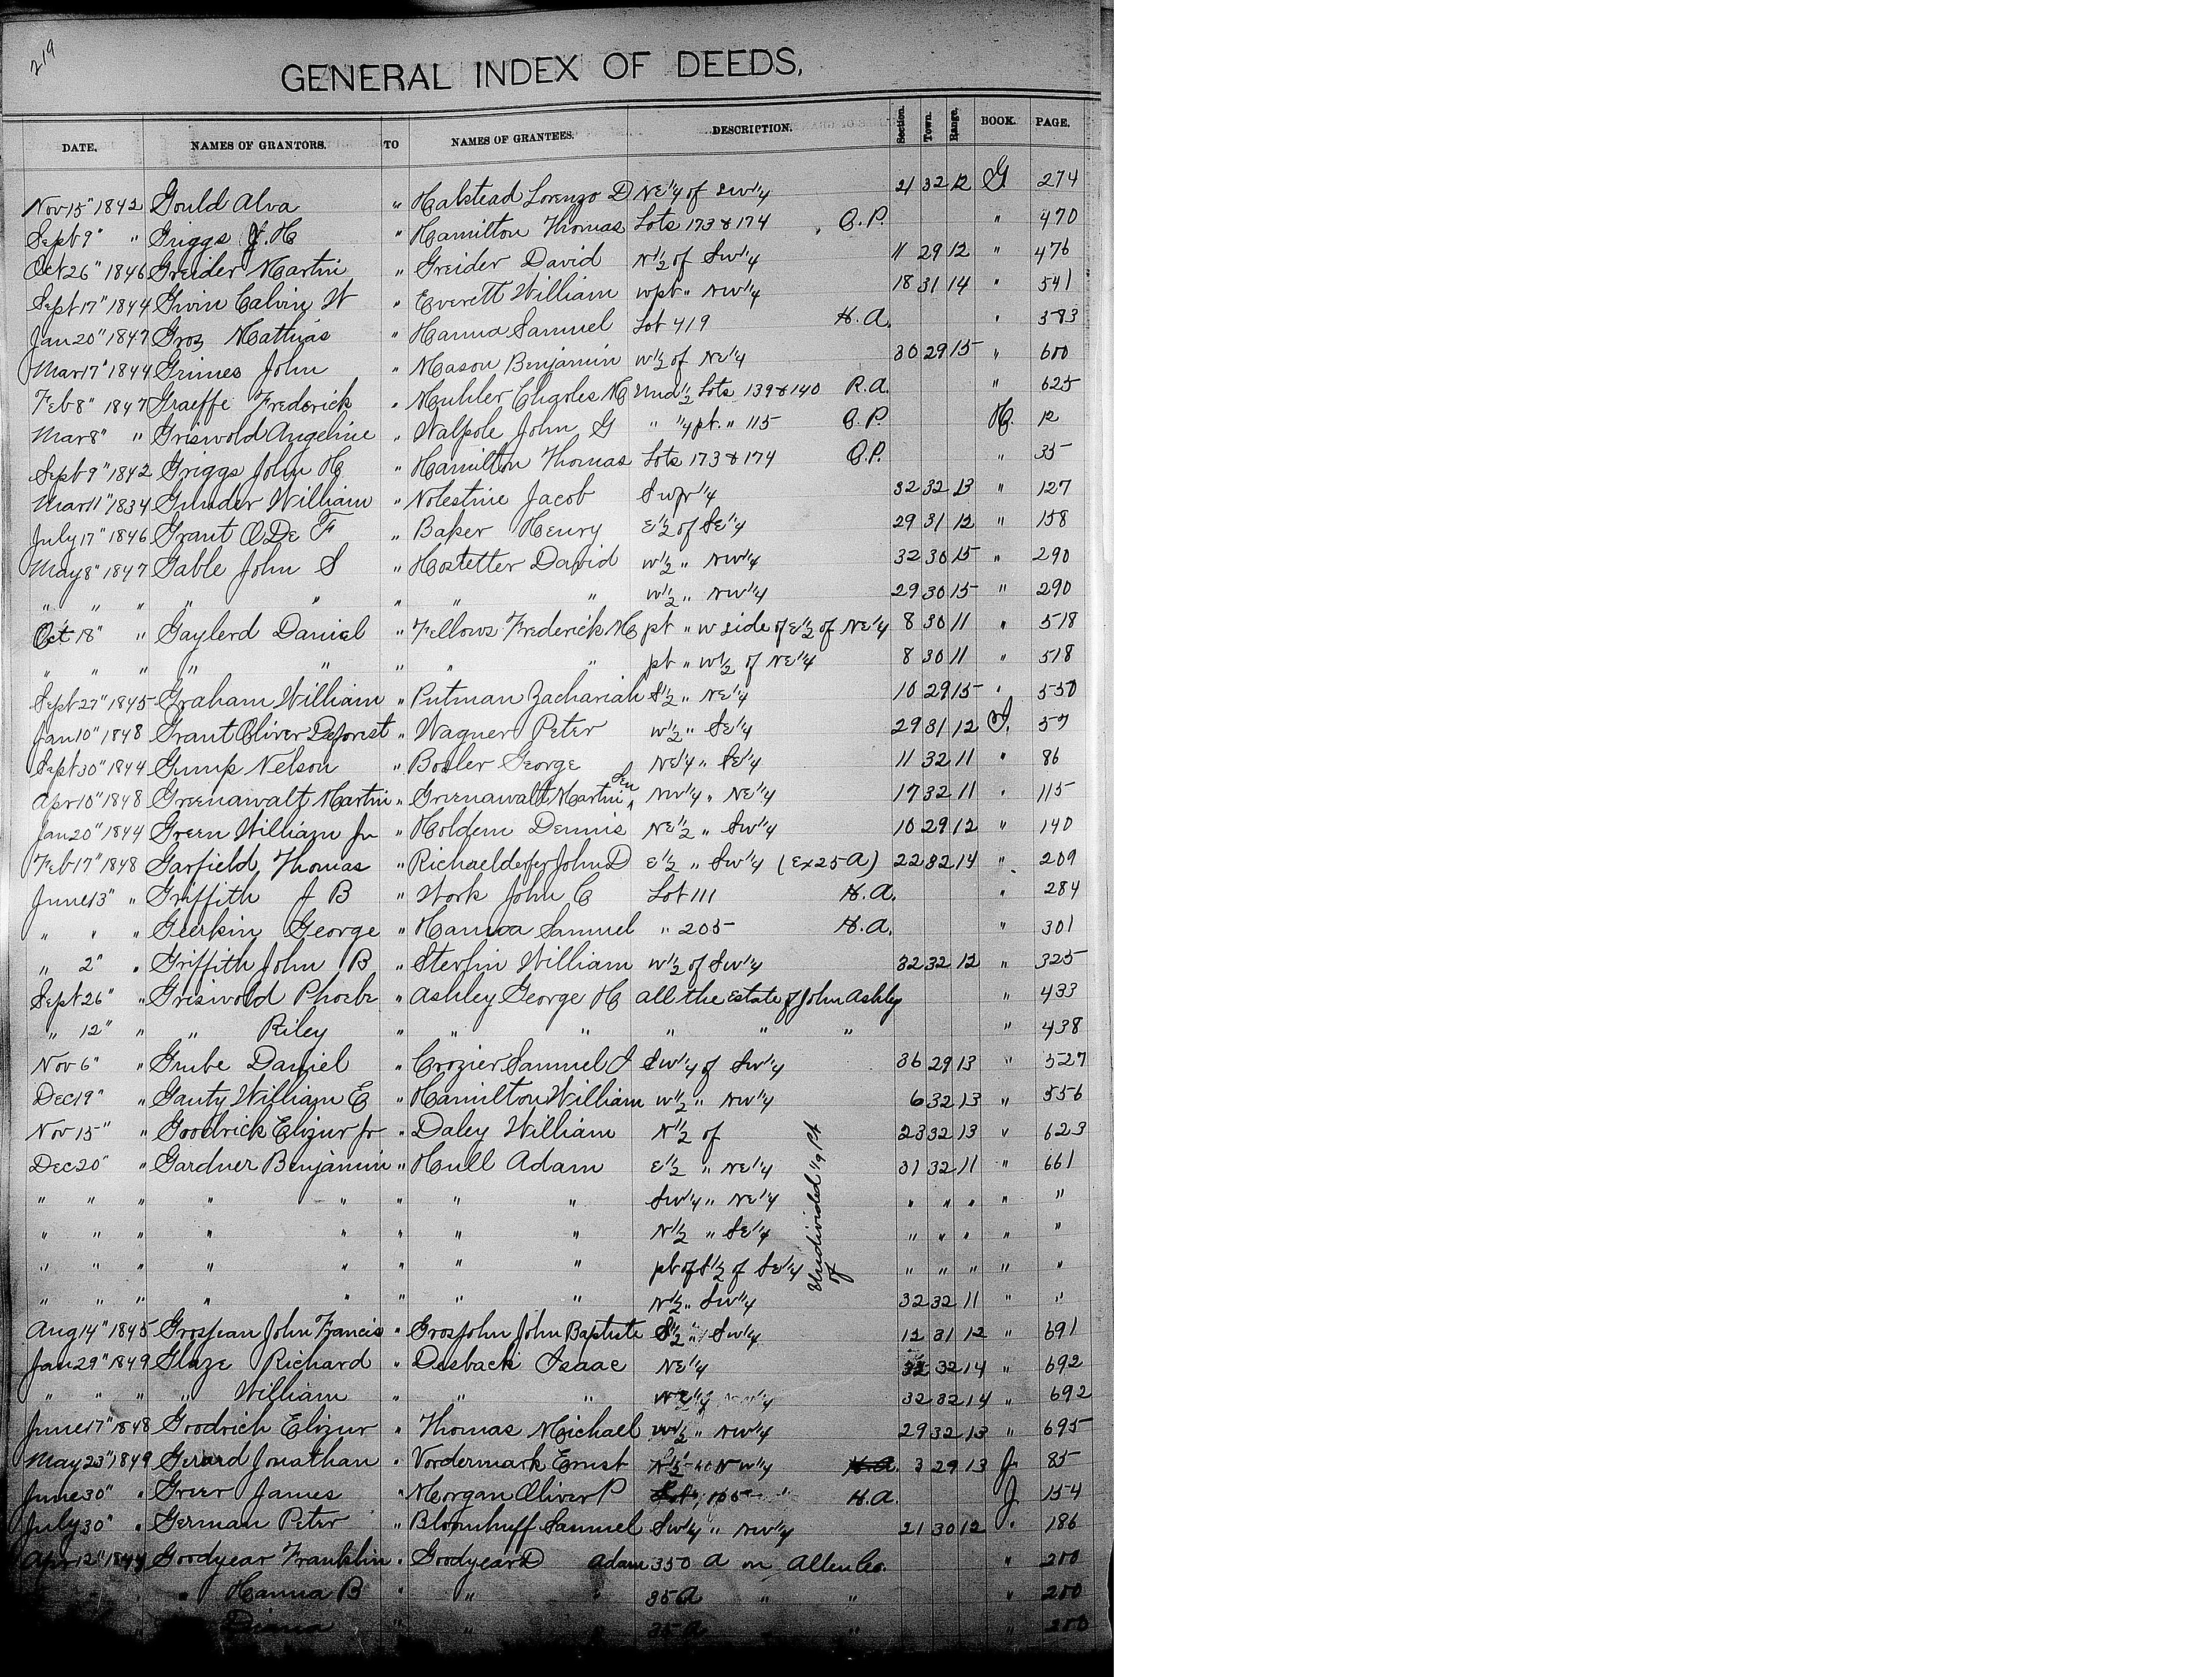 219
GENERAL INDEX OF DEEDS,
DATE. NAMES OF GRANTORS. TO NAMES OF GRANTEES. DESCRIPTION. Section. Town. Range. BOOK. PAGE.
Nov 15" 1842 Gould Alva " Halstead Lorenzo D NE 1/4 of SW 1/4 21 32 12 G 274
Sept 9" " Griggs J. H " Hamilton Thomas Lots 173 & 174 O.P. " 470
Oct 26" 1846 Greider Martin " Greider David N 1/2 of SW 1/4 11 29 12 " 476
Sept 17" 1844 Givin Calvin W " Everett William W pt " NW 1/4 18 31 14 " 541
Jan 20" 1847 Groz Mathias " Hanna Samuel Lot 419 H.A. " 583
Mar 17" 1844 Grimes John " Mason Benjamin W 1/2 of NE 1/4 30 29 15 " 600
Feb 8" 1847 Graeffe Frederick " Muhler Charles M Und 1/2 Lots 139 & 140 R.A. " 625
Mar 8" " Griswold Angeline " Walpole John G " 1/4 pt. " 115 O.P. H. 12
Sept 9" 1842 Griggs John H " Hamilton Thomas Lots 173 & 174 O.P. " 35
Mar 11" 1834 Gunder William " Nolestine Jacob SW fr 1/4 32 32 13 " 127
July 17" 1846 Grant O De F " Baker Henry E 1/2 of SE 1/4 29 31 12 " 158
May 8" 1847 Gable John S " Hostetter David W 1/2 " NW 1/4 32 30 15 " 290
" " " " " " " " W 1/2 " NW 1/4 29 30 15 " 290
Oct 18" " Gaylerd Daniel " Fellows Frederick H pt " W side of E 1/2 of NE 1/4 8 30 11 " 518
" " " " " " " " pt " W 1/2 of NE 1/4 8 30 11 " 518
Sept 27" 1845 Graham William " Putman Zachariah S 1/2 " NE 1/4 10 29 15 " 550
Jan 10" 1848 Grant Oliver Deforest " Wagner Peter W 1/2 " SE 1/4 29 31 12 I. 57
Sept 30" 1844 Gump Nelson " Bosler George NE 1/4 " SE 1/4 11 32 11 " 86
Apr 10" 1848 Greenawalt Martin " Greenawalt Martin Sen NW 1/4 " NE 1/4 17 32 11 " 115
Jan 20" 1844 Green William Jr " Holdem Dennis NE 1/2 " SW 1/4 10 29 12 " 140
Feb 17" 1848 Garfield Thomas " Richaelderfer John D E 1/2 " SW 1/4 (Ex 25 A) 22 32 14 " 209
June 13" " Griffith J B " Work John C Lot 111 H.A. " 284
" " " Geerkin George " Hanna Samuel " 205 H.A. " 301
" 2" " Griffith John B " Sterlin William W 1/2 of SW 1/4 32 32 12 " 325
Sept 26" " Griswold Phoebe " Ashley George H all the Estate of John Ashley " 433
" 12" " " Riley " " " " " " " 438
Nov 6" " Grube Daniel " Crozier Samuel J SW 1/4 of SW 1/4 36 29 13 " 527
Dec 19" " Gauty William E " Hamilton William W 1/2 " NW 1/4 6 32 13 " 556
Nov 15" " Goodrick Elizur Jr " Daley William N 1/2 of 23 32 13 " 623
Dec 20" " Gardner Benjamin " Hull Adam E 1/2 " NE 1/4 31 32 11 " 661
" " " " " " " " SW 1/4 " NE 1/4 " " " " "
" " " " " " " " N 1/2 " SE 1/4 " " " " "
" " " " " " " " pt of S 1/2 of SE 1/4 " " " " "
" " " " " " " " N 1/2 " SW 1/4 32 32 11 " "
Undivided 1/9 pt of
Aug 14" 1845 Grosjean John Francis " Grosjohn John Baptiste S 1/2 " SW 1/4 12 31 12 " 691
Jan 29" 1849 Glaze Richard " Desback Isaac NE 1/4 32 32 14 " 692
" " " " William " " " 32 32 14 " 692
June 17" 1848 Goodrich Elizur " Thomas Michael W 1/2 " NW 1/4 29 32 13 " 695
May 23" 1849 Gerard Jonathan " Vordermark Ernst N 1/2 NW 1/4 H.A. 3 29 13 J. 85
June 30" " Greer James " Morgan Oliver P Lot H.A. J 154
July 30" " German Peter " Bloomhuff Samuel SW 1/4 " NW 1/4 21 30 12 " 186
Apr 12" Goodyear Franklin " Goodyear D Adam 350 A in Allen Co. " 200
" Hanna B " " " 35 A " " " 200
Diana " " " 35 A " " " 200